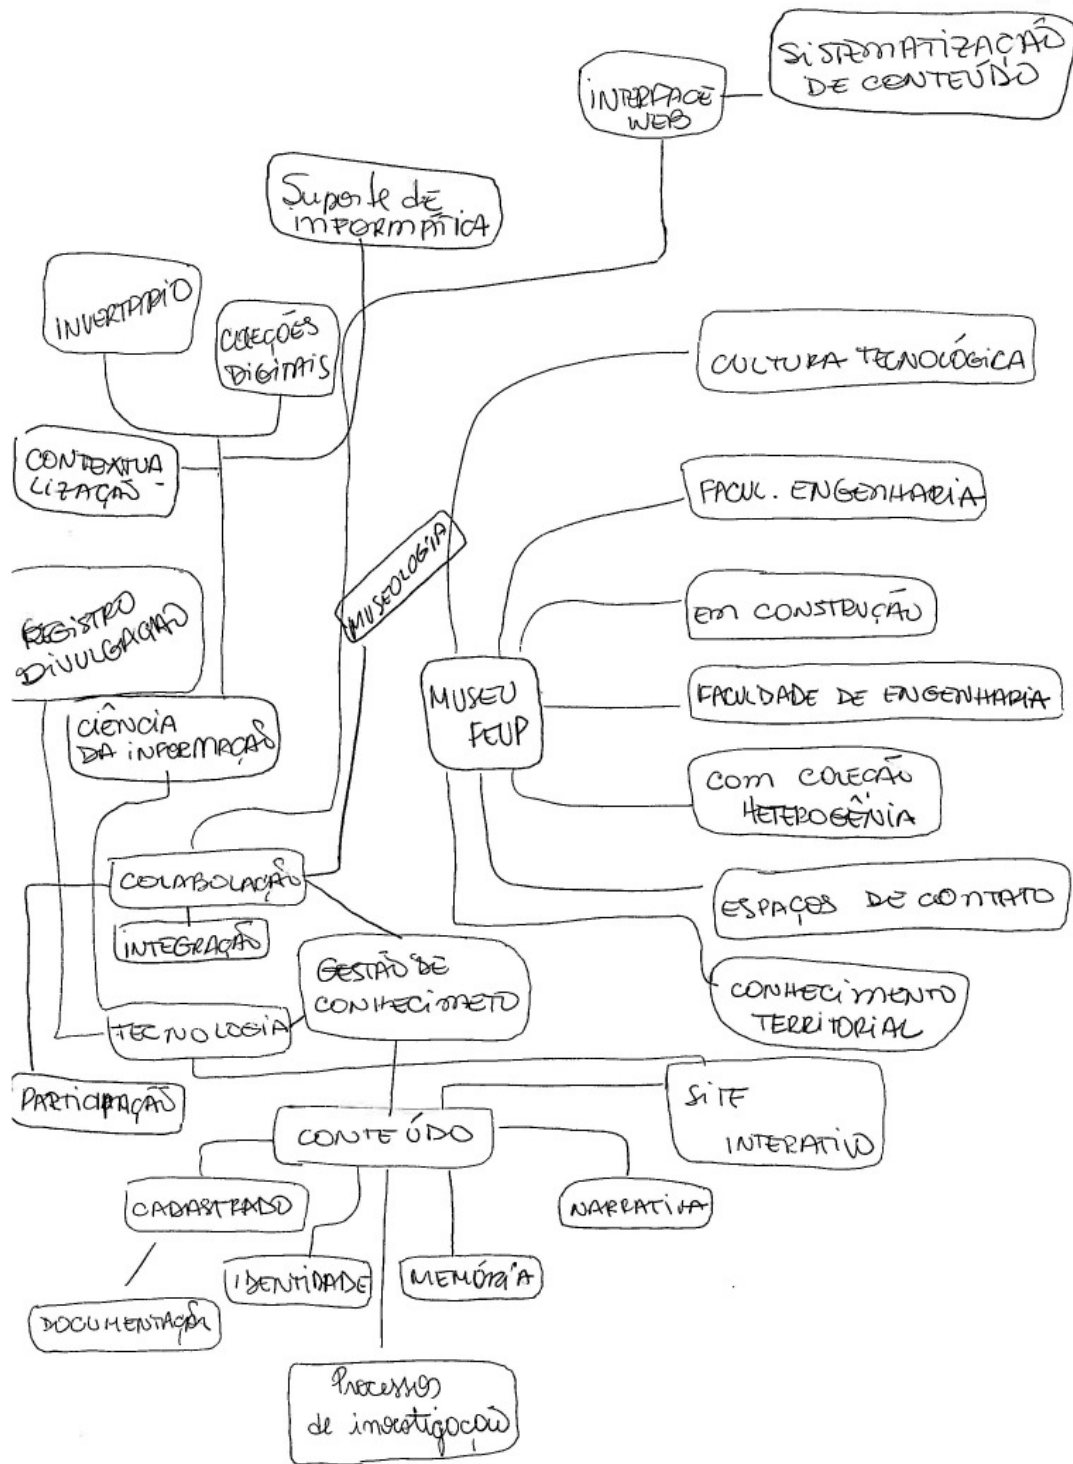 SISTEMATIZAÇÃO
DE CONTEÚDO
INTERFACE
WEB
Suporte de
INFORMÁTICA
INVERTARIO
COLEÇÕES
DIGITAIS
CULTURA TECNOLÓGICA
CONTEXTUA
LIZAÇÃO
FACUL. ENGENHARIA
MUSEOLOGIA
EM CONSTRUÇÃO
REGISTRO
DIVULGAÇÃO
MUSEU
FEUP
FACULDADE DE ENGENHARIA
CIÊNCIA
DA INFORMAÇÃO
COM COLEÇÃO
HETEROGÊNIA
COLABOLAÇÃO
ESPAÇOS DE CONTATO
INTEGRAÇÃO
GESTÃO DE
CONHECIMETO
CONHECIMENTO
TERRITORIAL
TECNOLOGIA
PARTICIPAÇÃO
SITE
INTERATIVO
CONTEÚDO
CADASTRADO
NARRATIVA
IDENTIDADE
MEMÓRIA
DOCUMENTAÇÃO
Processos
de investigação